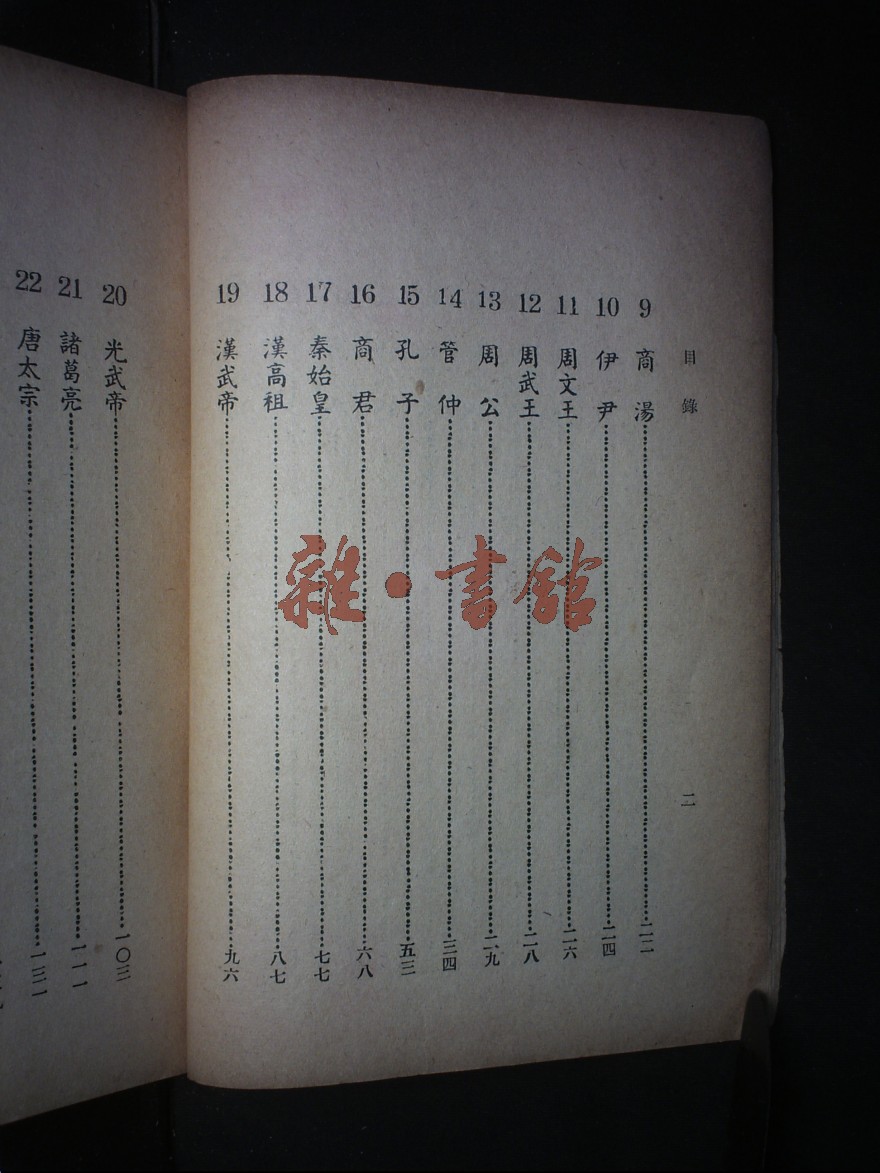 目錄 二
9 商湯……二二
10 伊尹……二四
11 周文王……二六
12 周武王……二八
13 周公……二九
14 管仲……三四
15 孔子……五三
16 商君……六八
17 秦始皇……七七
18 漢高祖……八七
19 漢武帝……九六
20 光武帝……一〇三
21 諸葛亮……一一一
22 唐太宗……一三一
雜·書館